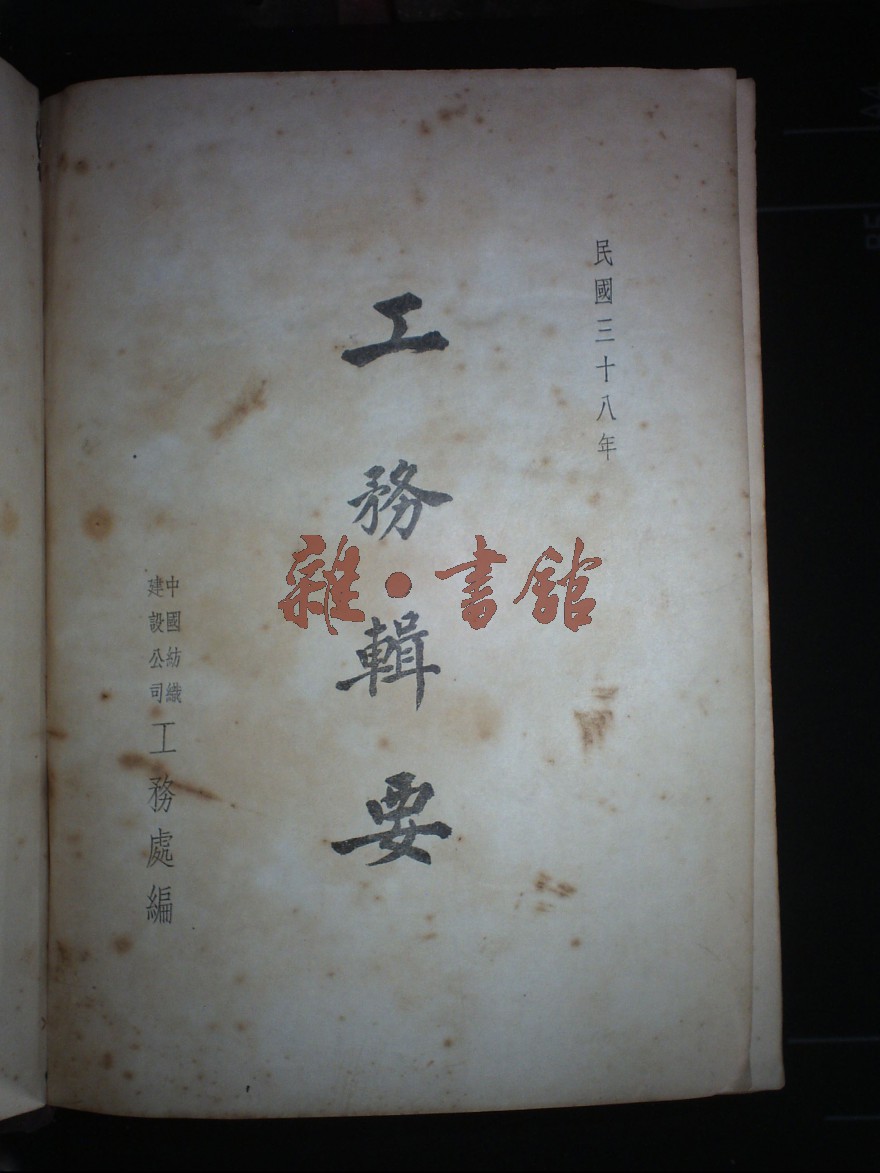 民國三十八年
工務輯要
中國紡織
建設公司
工務處編
雜·書館